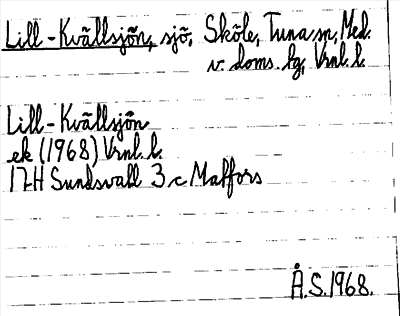 Lill-Kvällsjön, sjö, Sköle, Tuna sn, Med.
v. doms. hg, Vrnl. l.
Lill-Kvällsjön
ek (1968) Vrnl. l.
17H Sundsvall 3 c Matfors
Å.S. 1968.